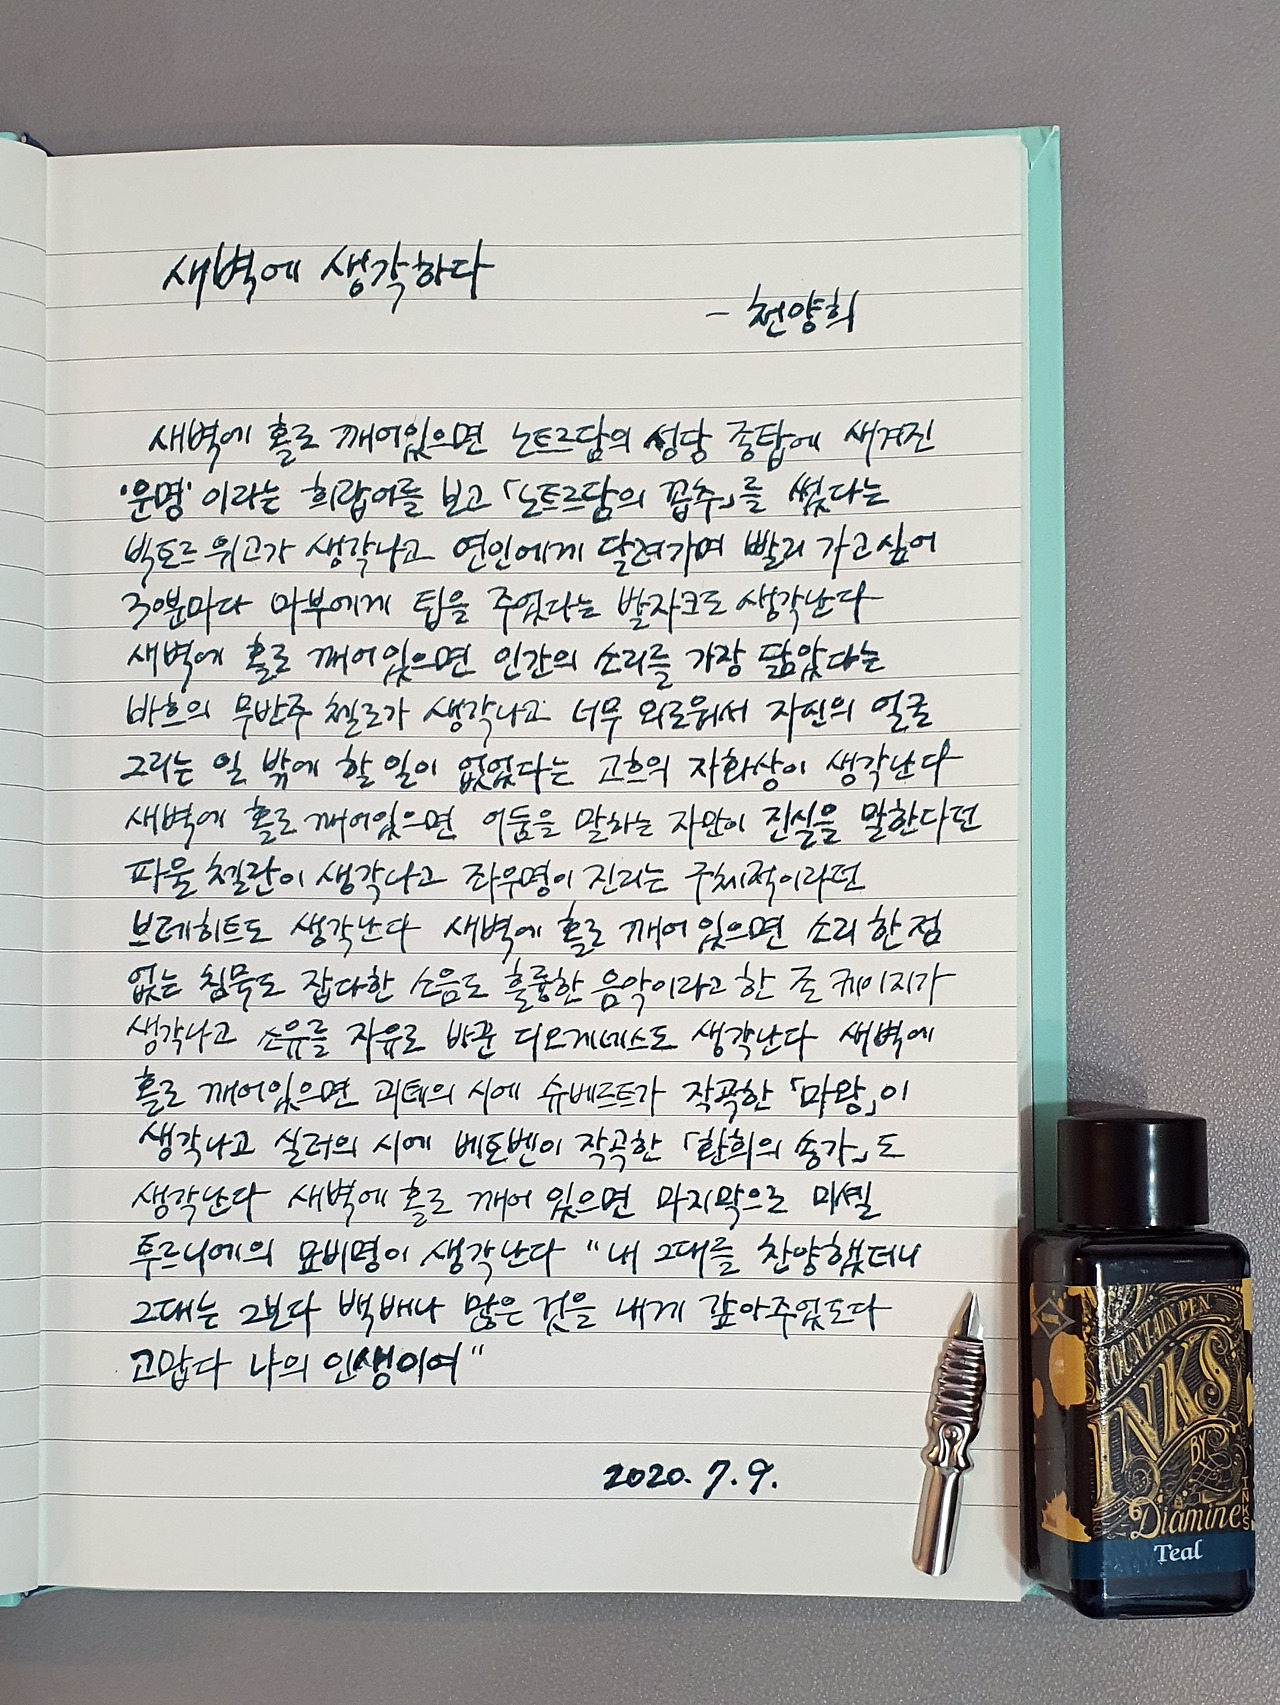 새벽에 생각하다
- 천양희
새벽에 홀로 깨어있으면 노트르담의 성당 종탑에 새겨진
'운명' 이라는 희랍어를 보고 「노트르담의 꼽추」를 썼다는
빅토르 위고가 생각나고 연인에게 달려가며 빨리 가고싶어
30분마다 마부에게 팁을 주었다는 발자크도 생각난다
새벽에 홀로 깨어있으면 인간의 소리를 가장 닮았다는
바흐의 무반주 첼로가 생각나고 너무 외로워서 자신의 얼굴
그리는 일 밖에 할 일이 없었다는 고흐의 자화상이 생각난다
새벽에 홀로 깨어있으면 어둠을 말하는 자만이 진실을 말한다던
파울 첼란이 생각나고 좌우명이 진리는 구체적이라던
브레히트도 생각난다 새벽에 홀로 깨어 있으면 소리 한 점
없는 침묵도 잡다한 소음도 훌륭한 음악이라고 한 존 케이지가
생각나고 소유를 자유로 바꾼 디오게네스도 생각난다 새벽에
홀로 깨어있으면 괴테의 시에 슈베르트가 작곡한 「마왕」이
생각나고 실러의 시에 베토벤이 작곡한 「환희의 송가」도
생각난다 새벽에 홀로 깨어 있으면 마지막으로 미셸
투르니에의 묘비명이 생각난다 "내 그대를 찬양했더니
그대는 그보다 백배나 많은 것을 내게 갚아주었도다
고맙다 나의 인생이여"
2020. 7. 9.
FOUNTAIN PEN
INKS
BY
Diamine
INKS
Teal